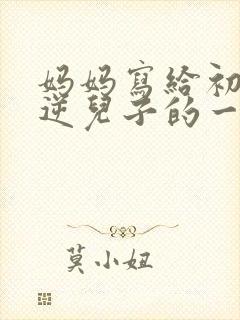 妈妈寫給初
逆兒子的一
莫小妞